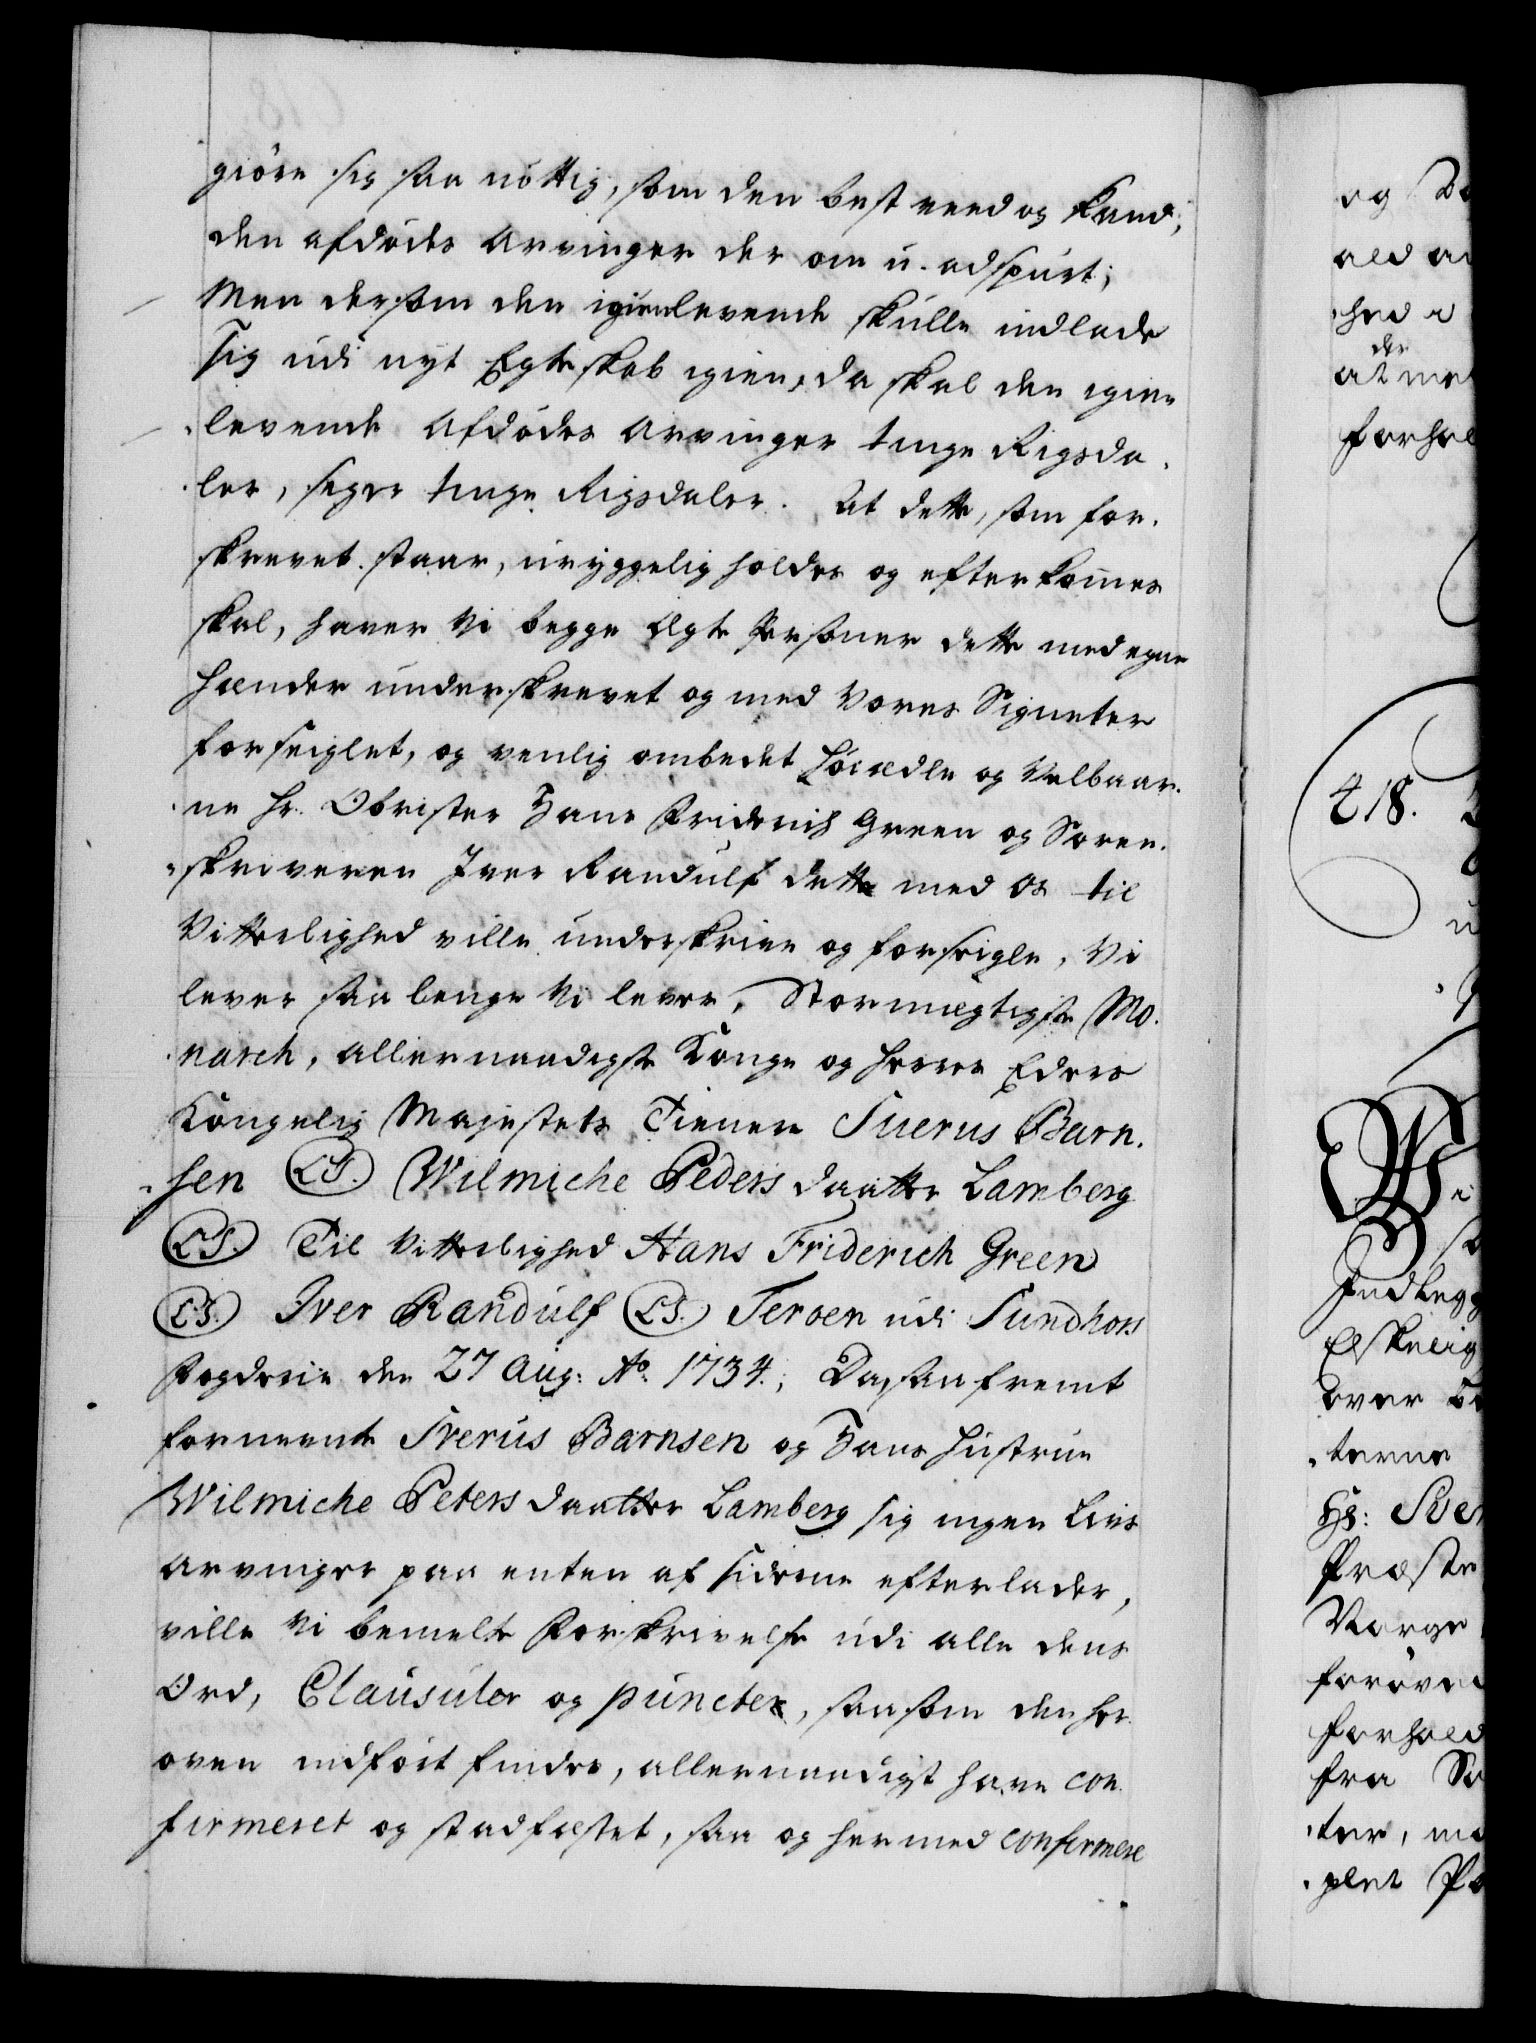 giøre sig saa nøttig, som den best veed og kand,
den afdødes arvinger der om u-adspurt;
Men dersom den igienlevende skulle indlade
sig udi nyt Egteskab igien, da skal den igien
levende afdødes arvinger tinge Rigsda-
ler, siger tinge Rigsdaler. At dette, som for-
skrevet staar, uryggelig holdes og efterkommes
skal, haver vi begge Egte Persóner dette med egne
hænder underskrevet og med vores Signeter
forseiglet, og venlig ombedet Høiædle og Velbaar-
ne Hr. Obrister Hans Friderich Green og Soren-
skriveren Iver Randulf dette med os til
Vitterlighed ville underskrive og forseigle, Vi
lever saa lenge vi lever, Stormægtigste Mo-
narch, allernaadigste Konge og Herre Eders
Kongelig Majestets Tienere Sverus Barn-
sen (LS.) Wilmiche Peders daatter Lamberg
(LS.) Til Vitterlighed Hans Friderich Green
(LS.) Iver Randulf (LS.) Teroen udi Sundhors
Fogderie den 27 Aug: Ao. 1734.; Da, saafremt
fornævnte Sverus Barnsen og Hans Hustrue
Wilmiche Peters daatter Lamberg sig ingen Livs
arvinger paa enten af siderne efterlader,
ville Vi bemelte Forskrivelse udi alle dens
Ord, Clausuler og puncter, saasom den her
oven indført findes, allernaadigst have con-
firmeret og stadfæstet, saa og hermed confirmere
og
ald
hed
der
at
forhol
418.
Wi
Indlegg
Elskelig
over
terne
Hs: Sver
Præste
Norge
forøve
forhold
fra
ter,